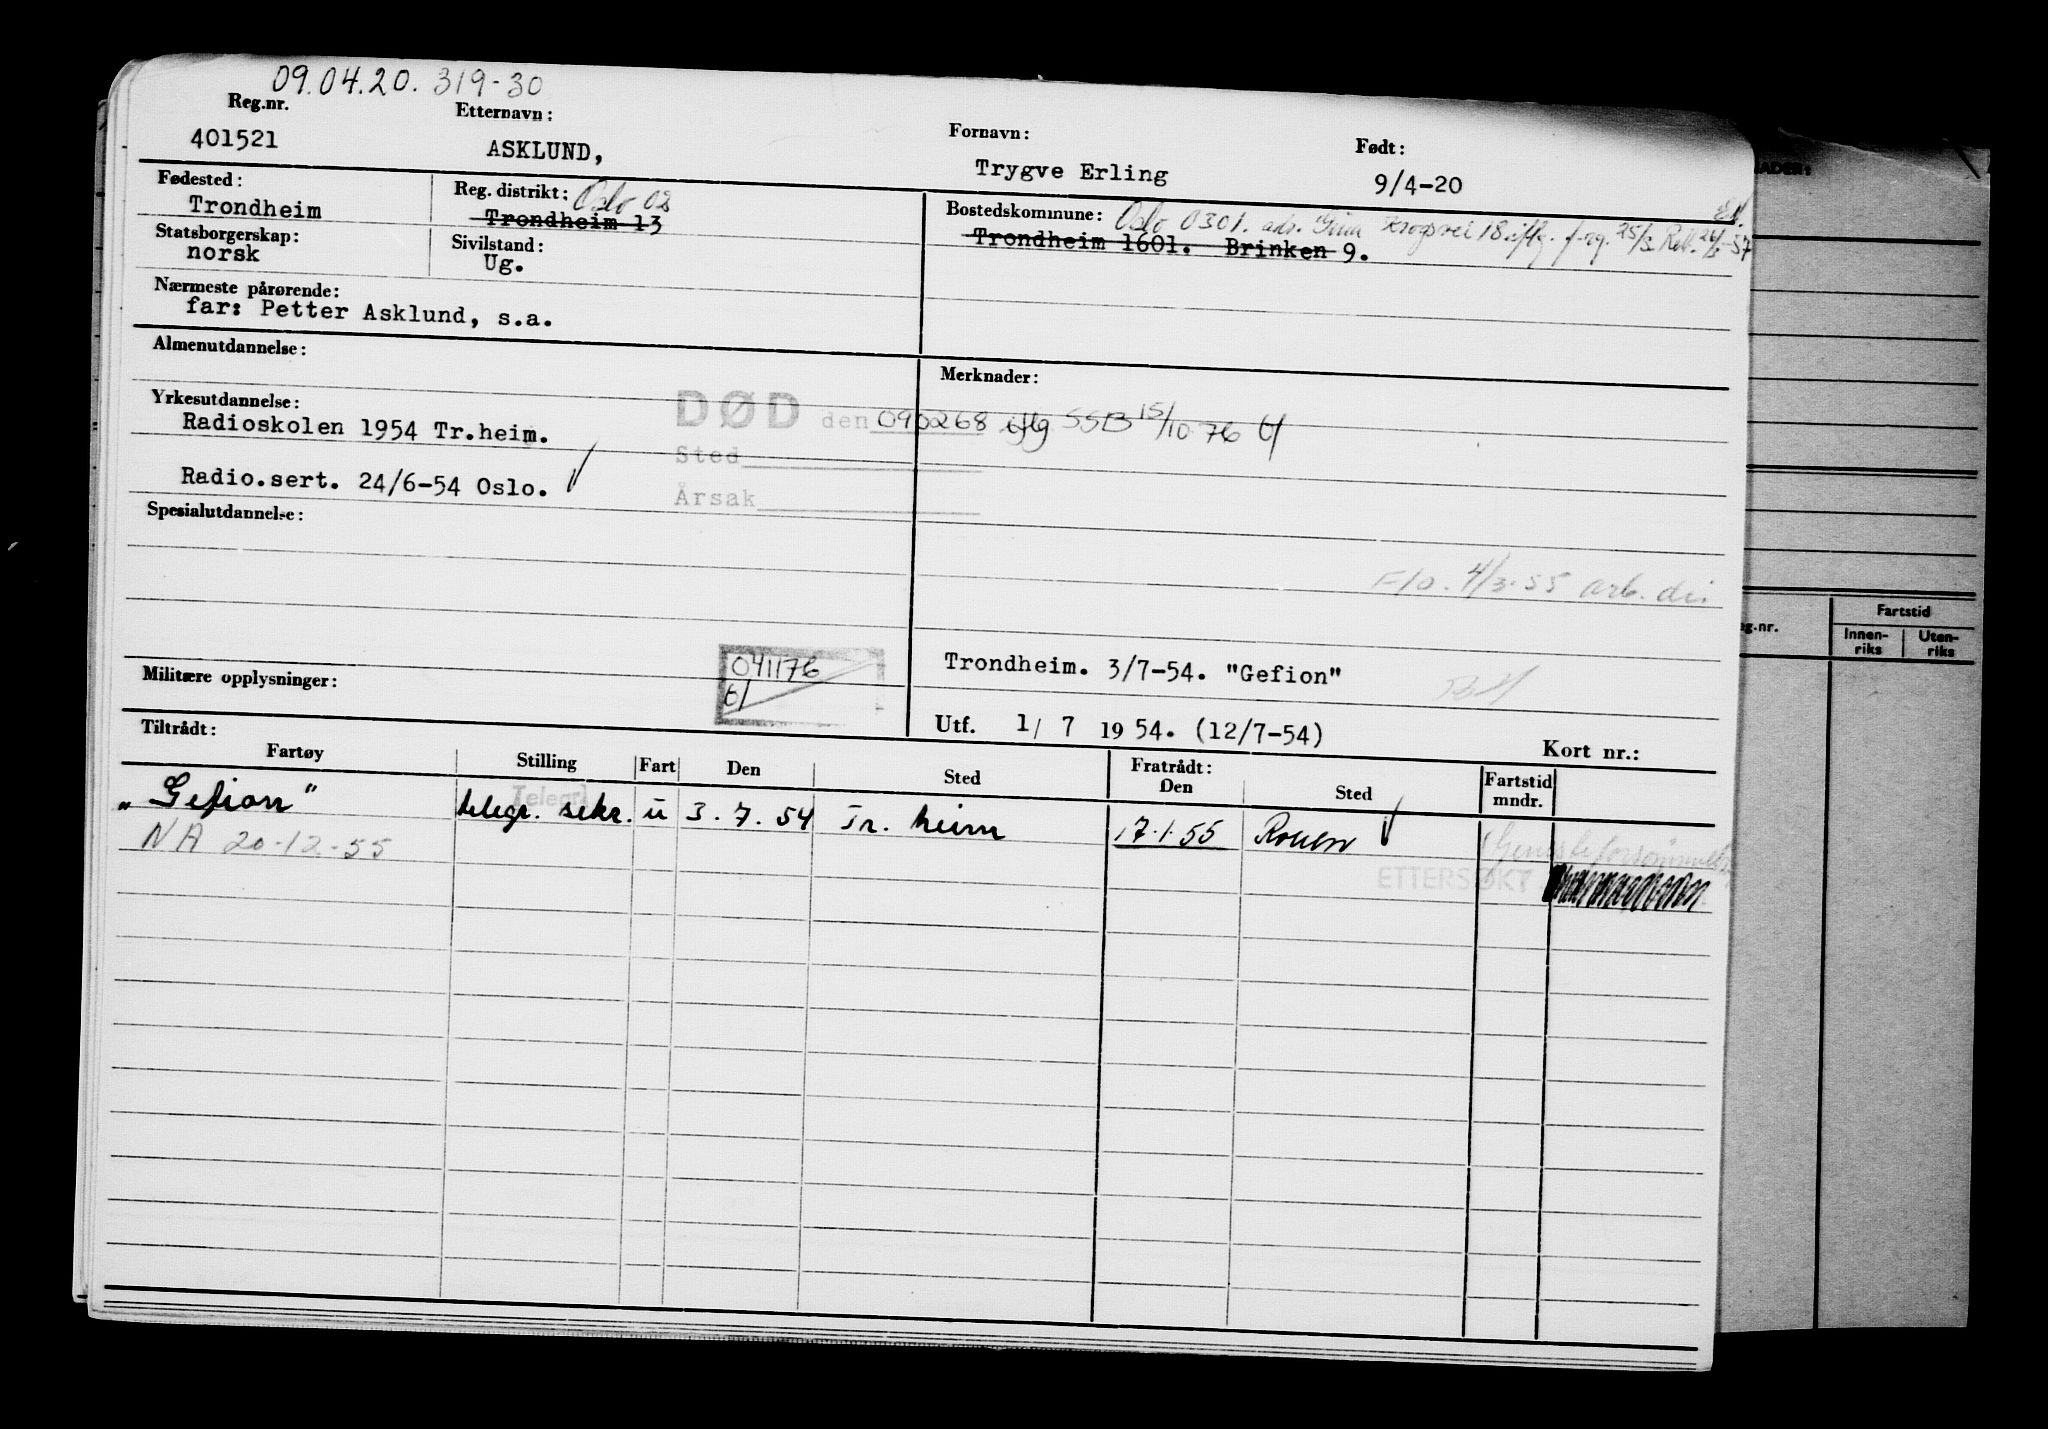 09.04.20. 319-30
Reg.nr. Etternavn: Fornavn: Født:
401521 ASKLUND, Trygve Erling 9/4-20
Fødested: Reg. distrikt: Oslo 02 Bostedskommune: Oslo 0301. adr. Gina Krogsvei 18 iflg. f.og. 25/3 Rek. 26/3-57
Trondheim Trondheim 13 Trondheim 1601. Brinken 9.
Statsborgerskap: Sivilstand:
norsk Ug.
Nærmeste pårørende:
far: Petter Asklund, s.a.
Almenutdannelse: Merknader:
Yrkesutdannelse: DØD den 090268 iflg SSB 15/10 76
Radioskolen 1954 Tr.heim.
Sted
Radio.sert. 24/6-54 Oslo.
Årsak
Spesialutdannelse:
F/O. 4/3-55 arb. dir
041176
Trondheim. 3/7-54. "Gefion"
Militære opplysninger:
Utf. 1/7 1954. (12/7-54) Kort nr.:
Tiltrådt: Fratrådt:
Fartøy Stilling Fart Den Sted Den Sted Fartstid mndr.
Telegr.
„Gefion" telegr. sekr. u 3.7.54 Tr. heim 17.1.55 Rouen
NA 20-12-55
ETTERSØKT
ADER:
eg.nr. Fartstid
Innenriks Utenriks